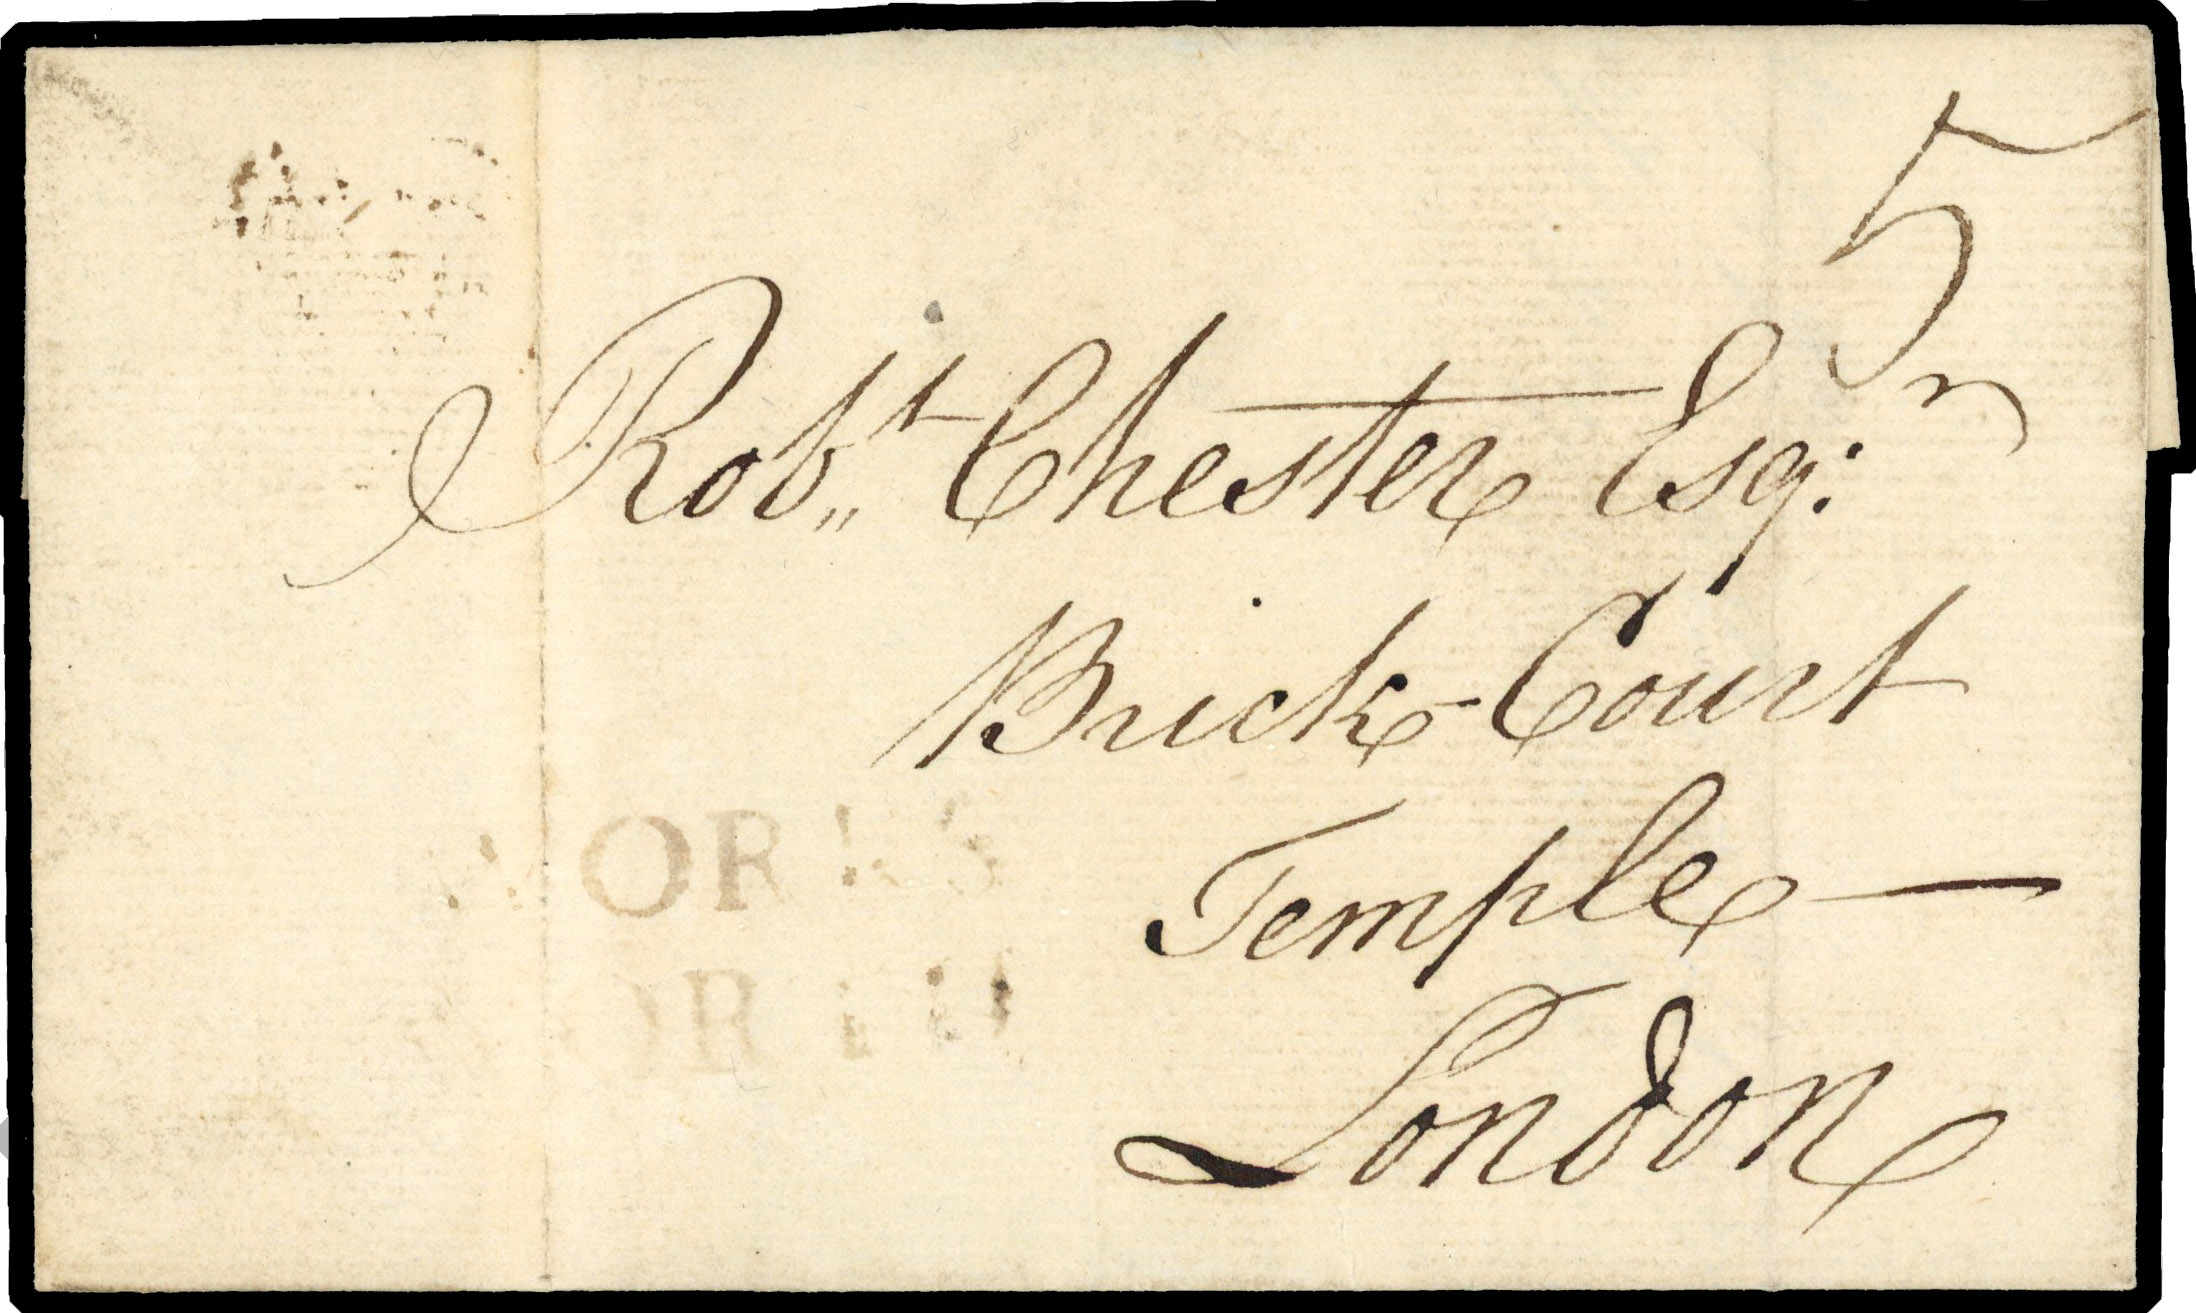 5
Rob,,t Chester Esq:r
Brick Court
Temple —
London